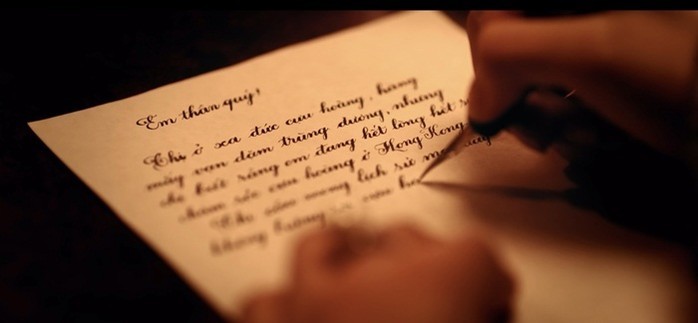 Em thân quý!
Chị ở xa đức cựu hoàng, hàng
mấy vạn dặm trùng dương, nhưng
chị biết rằng em đang hết lòng hết
chăm sóc cựu hoàng ở Hong Kong
Chị cầm mong lịch sử
không